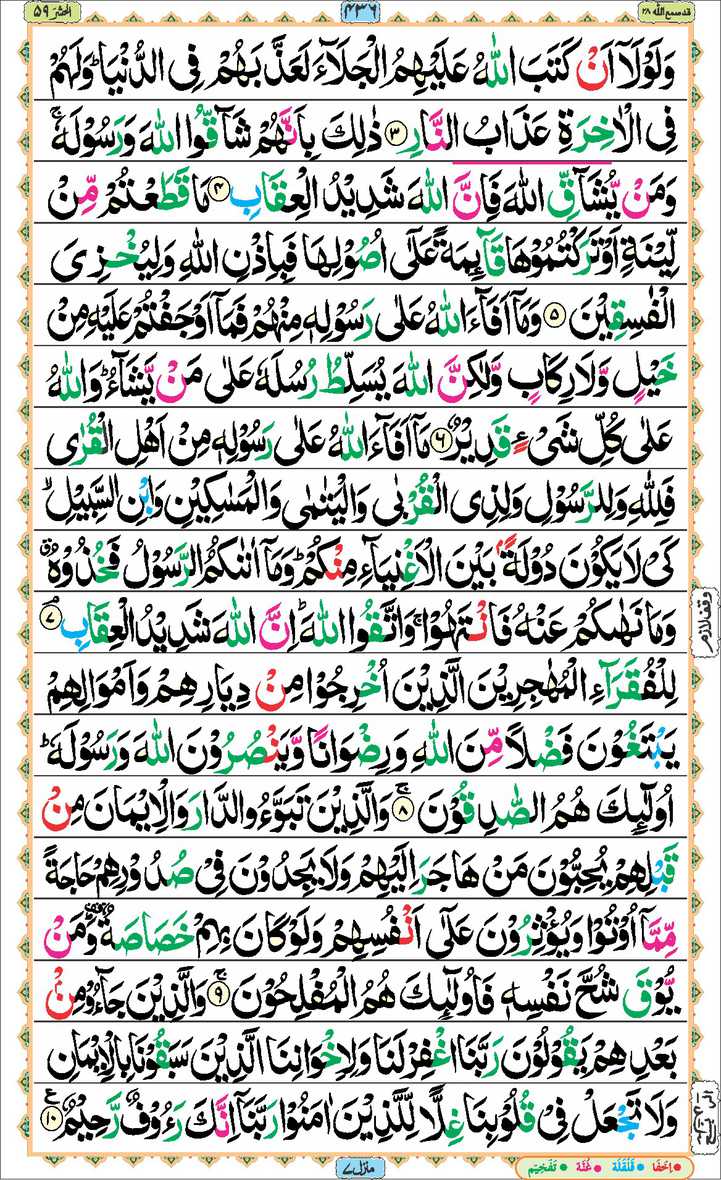 قد سمع الله ٢٨
٤٣٦
الحشر ٥٩
وَلَوْلَآ اَنْ كَتَبَ اللّٰهُ عَلَيْهِمُ الْجَلَآءَ لَعَذَّبَهُمْ فِى الدُّنْيَا ؕ وَلَهُمْ
فِى الْاٰخِرَةِ عَذَابُ النَّارِ ۝۳ ذٰلِكَ بِاَنَّهُمْ شَآقُّوا اللّٰهَ وَرَسُوْلَهٗ ۚ
وَمَنْ يُّشَآقِّ اللّٰهَ فَاِنَّ اللّٰهَ شَدِيْدُ الْعِقَابِ ۝۴ مَا قَطَعْتُمْ مِّنْ
لِّيْنَةٍ اَوْ تَرَكْتُمُوْهَا قَآئِمَةً عَلٰٓى اُصُوْلِهَا فَبِاِذْنِ اللّٰهِ وَلِيُخْزِىَ
الْفٰسِقِيْنَ ۝۵ وَمَآ اَفَآءَ اللّٰهُ عَلٰى رَسُوْلِهٖ مِنْهُمْ فَمَآ اَوْجَفْتُمْ عَلَيْهِ مِنْ
خَيْلٍ وَّلَا رِكَابٍ وَّلٰكِنَّ اللّٰهَ يُسَلِّطُ رُسُلَهٗ عَلٰى مَنْ يَّشَآءُ ؕ وَاللّٰهُ
عَلٰى كُلِّ شَىْءٍ قَدِيْرٌ ۝۶ مَآ اَفَآءَ اللّٰهُ عَلٰى رَسُوْلِهٖ مِنْ اَهْلِ الْقُرٰى
فَلِلّٰهِ وَلِلرَّسُوْلِ وَلِذِى الْقُرْبٰى وَالْيَتٰمٰى وَالْمَسٰكِيْنِ وَابْنِ السَّبِيْلِ ۙ
كَىْ لَا يَكُوْنَ دُوْلَةًۢ بَيْنَ الْاَغْنِيَآءِ مِنْكُمْ ؕ وَمَآ اٰتٰىكُمُ الرَّسُوْلُ فَخُذُوْهُ ۗ
وَمَا نَهٰىكُمْ عَنْهُ فَانْتَهُوْا ۚ وَاتَّقُوا اللّٰهَ ؕ اِنَّ اللّٰهَ شَدِيْدُ الْعِقَابِ ۘ ۝۷
وقف لازم
لِلْفُقَرَآءِ الْمُهٰجِرِيْنَ الَّذِيْنَ اُخْرِجُوْا مِنْ دِيَارِهِمْ وَاَمْوَالِهِمْ
يَبْتَغُوْنَ فَضْلًا مِّنَ اللّٰهِ وَرِضْوَانًا وَّيَنْصُرُوْنَ اللّٰهَ وَرَسُوْلَهٗ ؕ
اُولٰٓئِكَ هُمُ الصّٰدِقُوْنَ ۚ ۝۸ وَالَّذِيْنَ تَبَوَّءُو الدَّارَ وَالْاِيْمَانَ مِنْ
قَبْلِهِمْ يُحِبُّوْنَ مَنْ هَاجَرَ اِلَيْهِمْ وَلَا يَجِدُوْنَ فِىْ صُدُوْرِهِمْ حَاجَةً
مِّمَّآ اُوْتُوْا وَيُؤْثِرُوْنَ عَلٰٓى اَنْفُسِهِمْ وَلَوْ كَانَ بِهِمْ خَصَاصَةٌ ؕ وَمَنْ
يُّوْقَ شُحَّ نَفْسِهٖ فَاُولٰٓئِكَ هُمُ الْمُفْلِحُوْنَ ۚ ۝۹ وَالَّذِيْنَ جَآءُوْ مِنْۢ
بَعْدِهِمْ يَقُوْلُوْنَ رَبَّنَا اغْفِرْ لَنَا وَلِاِخْوَانِنَا الَّذِيْنَ سَبَقُوْنَا بِالْاِيْمَانِ
وَلَا تَجْعَلْ فِىْ قُلُوْبِنَا غِلًّا لِّلَّذِيْنَ اٰمَنُوْا رَبَّنَآ اِنَّكَ رَءُوْفٌ رَّحِيْمٌ ۝۱۰ ع
منزل ۷
اِخفَا • قَلقَلَة • غُنَّة • تَفْخِيْم •